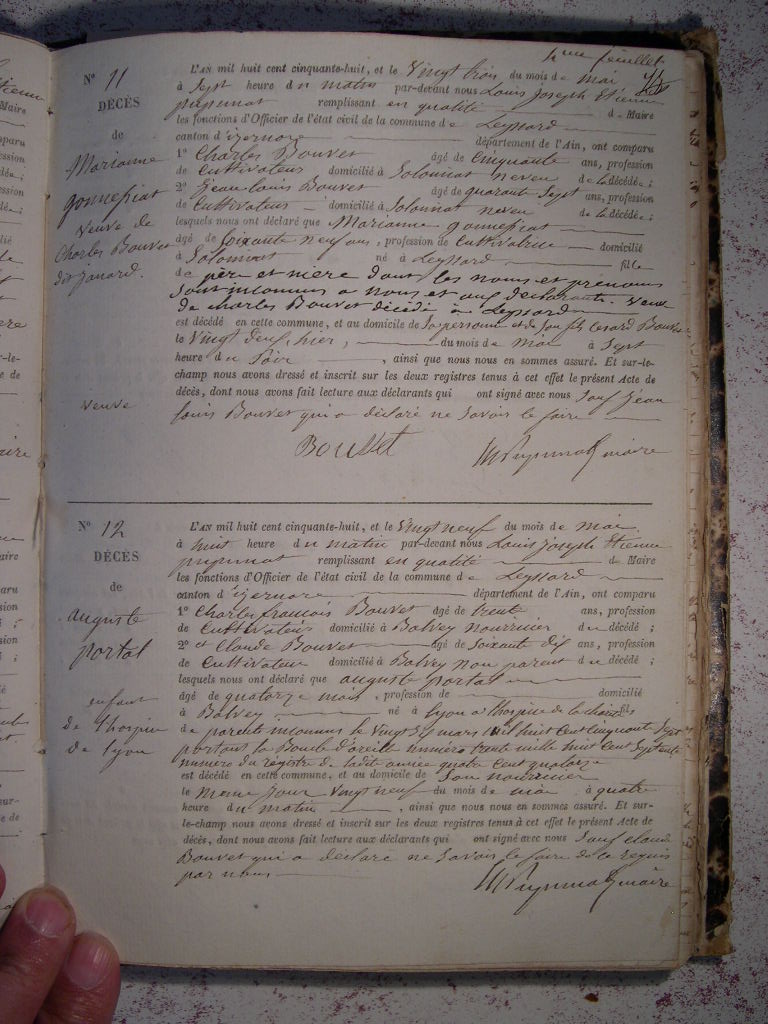 4me feuillet
N° 11
DÉCÈS
de
Marianne
gonnessiat
veuve de
Charles Bouvet
dit Janard.
veuve
L'AN mil huit cent cinquante-huit, et le Vingt trois du mois de mai
à Sept heure du matin par-devant nous Louis Joseph Etienne
remplissant en qualité de Maire
les fonctions d'Officier de l'état civil de la commune de Leyssard
canton d'izernore département de l'Ain, ont comparu
1° Charles Bouvet âgé de Cinquante ans, profession
de Cultivateur domicilié à Solonnat neveu de la décédée ;
2° Jean Louis Bouvet âgé de quarante Sept ans, profession
de Cultivateur domicilié à Solonnat neveu de la décédée ;
lesquels nous ont déclaré que Marianne gonnessiat
âgé de Soixante neuf ans, profession de Cultivatrice domicilié
à Solonnat né à Leyssard fille
de père et mère dont les noms et prénoms
Sont inconnus a nous et aux déclarants. Veuve
de Charles Bouvet décédé à Leyssard
est décédé en cette commune, et au domicile de Sa personne et de Son fils Cesard Bouvet
le Vingt deux, hier, du mois de mai à Sept
heure du Soir, ainsi que nous nous en sommes assuré. Et sur-le-
champ nous avons dressé et inscrit sur les deux registres tenus à cet effet le présent Acte de
décès, dont nous avons fait lecture aux déclarants qui ont signé avec nous Sauf Jean
Louis Bouvet qui a déclaré ne Savoir le faire
maire
N° 12
DÉCÈS
de
auguste
portal
enfant
de l'hospice
de Lyon
L'AN mil huit cent cinquante-huit, et le Vingt neuf du mois de mai
à huit heure du matin par-devant nous Louis Joseph Etienne
remplissant en qualité de Maire
les fonctions d'Officier de l'état civil de la commune de Leyssard
canton d'izernore département de l'Ain, ont comparu
1° Charles françois Bouvet âgé de trente ans, profession
de Cultivateur domicilié à Balvey nourricier du décédé ;
2° et Claude Bouvet âgé de Soixante dix ans, profession
de Cultivateur domicilié à Balvey non parent du décédé ;
lesquels nous ont déclaré que auguste portal
âgé de quatorze mois, profession de domicilié
à Balvey né à Lyon a l'hospice de la charité fils
de parents inconnus le Vingt Six mars mil huit Cent Cinquante Sept
portant la Boucle d'oreille numéro trente mille huit Cent Septante
numéro du registre de ladite année quatre Cent quatorze
est décédé en cette commune, et au domicile de Son nourricier
le meme Jour Vingt neuf du mois de mai à quatre
heure du matin, ainsi que nous nous en sommes assuré. Et sur-
le-champ nous avons dressé et inscrit sur les deux registres tenus à cet effet le présent Acte de
décès, dont nous avons fait lecture aux déclarants qui ont signé avec nous Sauf Claude
Bouvet qui a déclaré ne Savoir le faire de ce requis
par nous
maire